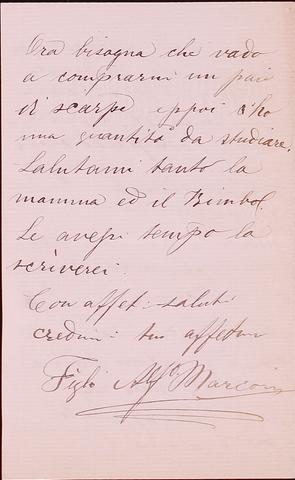 Ora bisogna che vado
a comprarmi un paio
di scarpe eppoi c'ho
una quantità da studiare.
Salutami tanto la
mamma ed il Bimbo.
Se avessi tempo la
scriverei.
Con affet. saluti
credimi tuo
Figlio Alf. Marconi